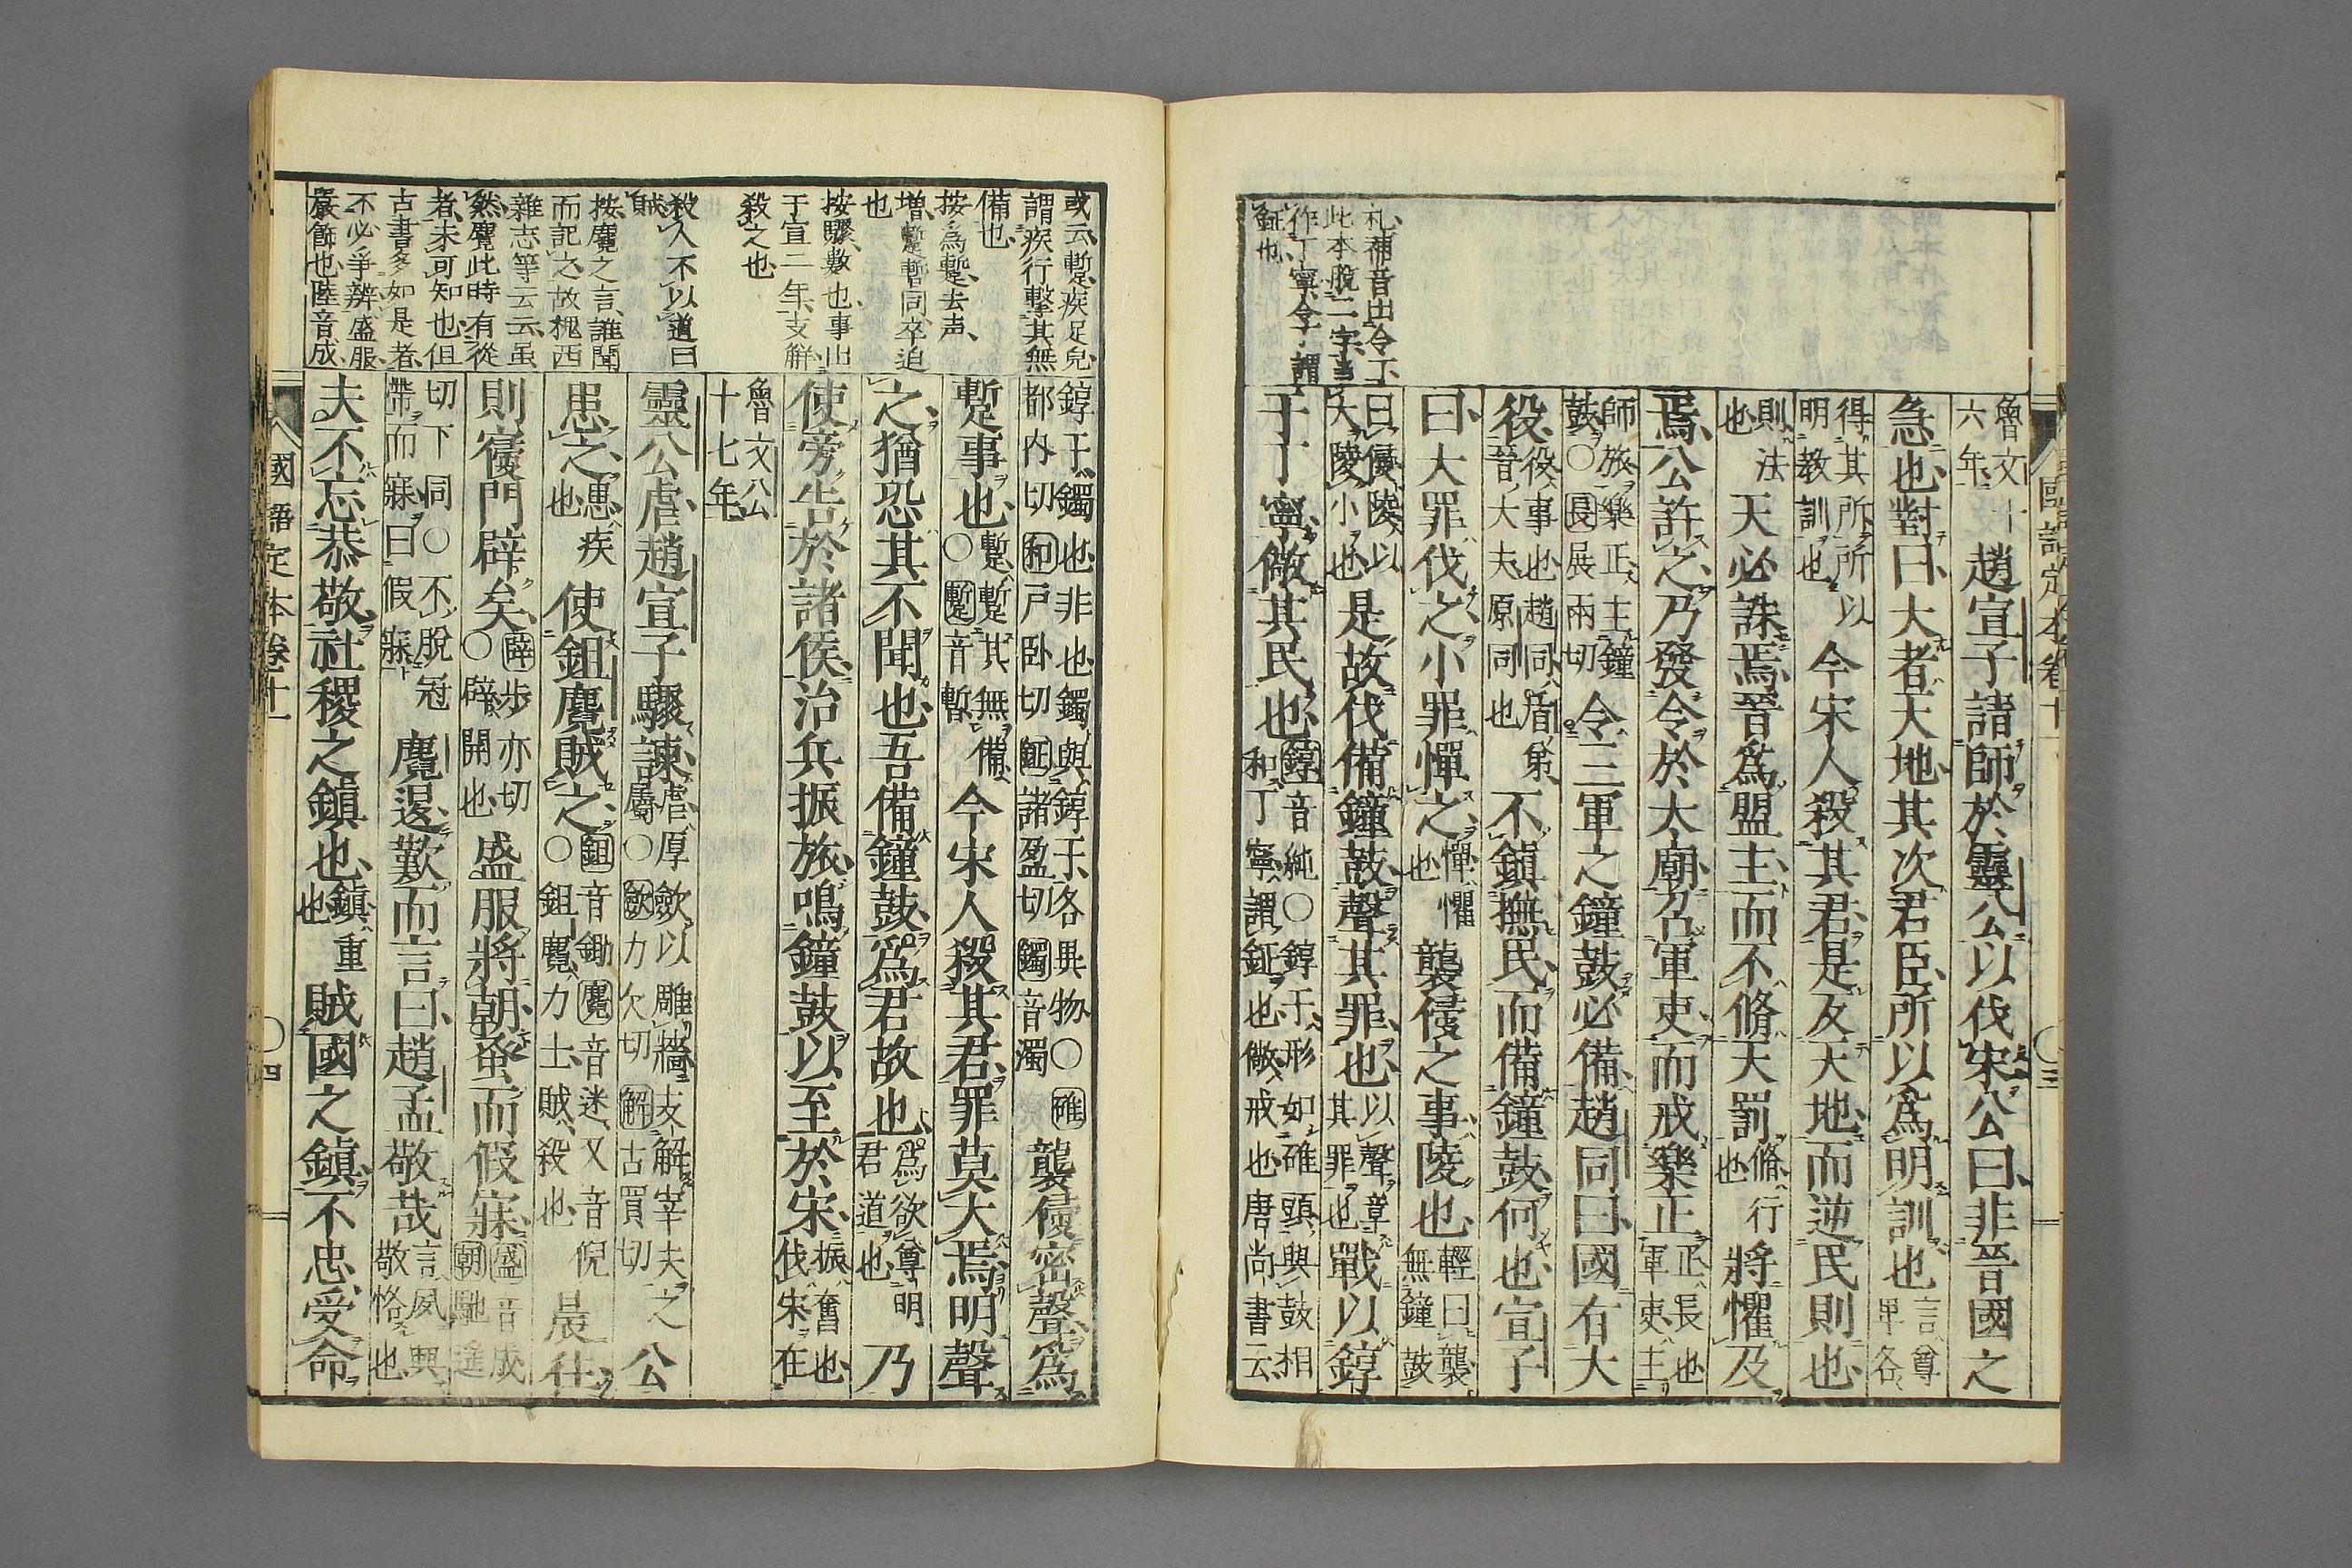 國語定本卷十一
〇三
札補音出令丁
此本脱二字當
作丁寧令丁謂
鉦也
魯文十六年趙宣子請師於靈公以伐宋公曰非晉國之
急也對曰大者天地其次君臣所以爲明訓也言尊卑各
得其所所以明教訓也今宋人殺其君是反天地而逆民則也
則法也天必誅焉晉爲盟主而不脩天罰脩行也將懼及
焉公許之乃發令於大廟召軍吏而戒樂正正長也軍吏主
師旅樂正主鐘鼓〇長展兩切令三軍之鐘鼓必備趙同曰國有大
役役事也趙同盾弟晉大夫原同也不鎮撫民而備鐘鼓何也宣子
曰大罪伐之小罪憚之憚懼也襲侵之事陵也輕曰襲無鐘鼓
曰侵陵以大陵小也是故伐備鐘鼓聲其罪也以聲章其罪也戰以錞
于丁寧儆其民也錞音純〇錞于形如碓頭與鼓相和丁寧謂鉦也儆戒也唐尚書云
或云蹔疾足皃
謂疾行擊其無
備也
按爲蹔去声
増蹔暫同卒迫
也
按驟數也事出
于宣二年支解
殺之也
殺人不以道曰
賊
按麑之言誰聞
而記之故槐西
雜志等云云虽
然麑此時有從
者未可知也但
古書多如是者
不必爭辨盛服
嚴飾也陸音成
錞于鐲也非也鐲與錞于各異物〇碓都内切和戸卧切鉦諸盈切鐲音濁襲侵密聲爲
蹔事也蹔蹔其無備〇蹔音暫今宋人殺其君罪莫大焉明聲
之猶恐其不聞也吾備鐘鼓爲君故也爲欲尊明君道也乃
使旁告於諸侯治兵振旅鳴鐘鼓以至於宋振奮也伐宋在
魯文公十七年
靈公虐趙宣子驟諫虐厚斂以雕牆支解宰夫之屬〇斂力欠切解古買切公
患之患疾也使鉏麑賊之鉏音鋤麑音迷又音倪〇鉏麑力士賊殺也晨往
則寢門辟矣辟步亦切〇辟開也盛服將朝蚤而假寐盛音成朝馳遙
切下同〇不脱冠帶而寐曰假寐麑退歎而言曰趙孟敬哉言夙興敬恪也
夫不忘恭敬社稷之鎮也鎮重也賊國之鎮不忠受命
國語定本卷十一
〇四